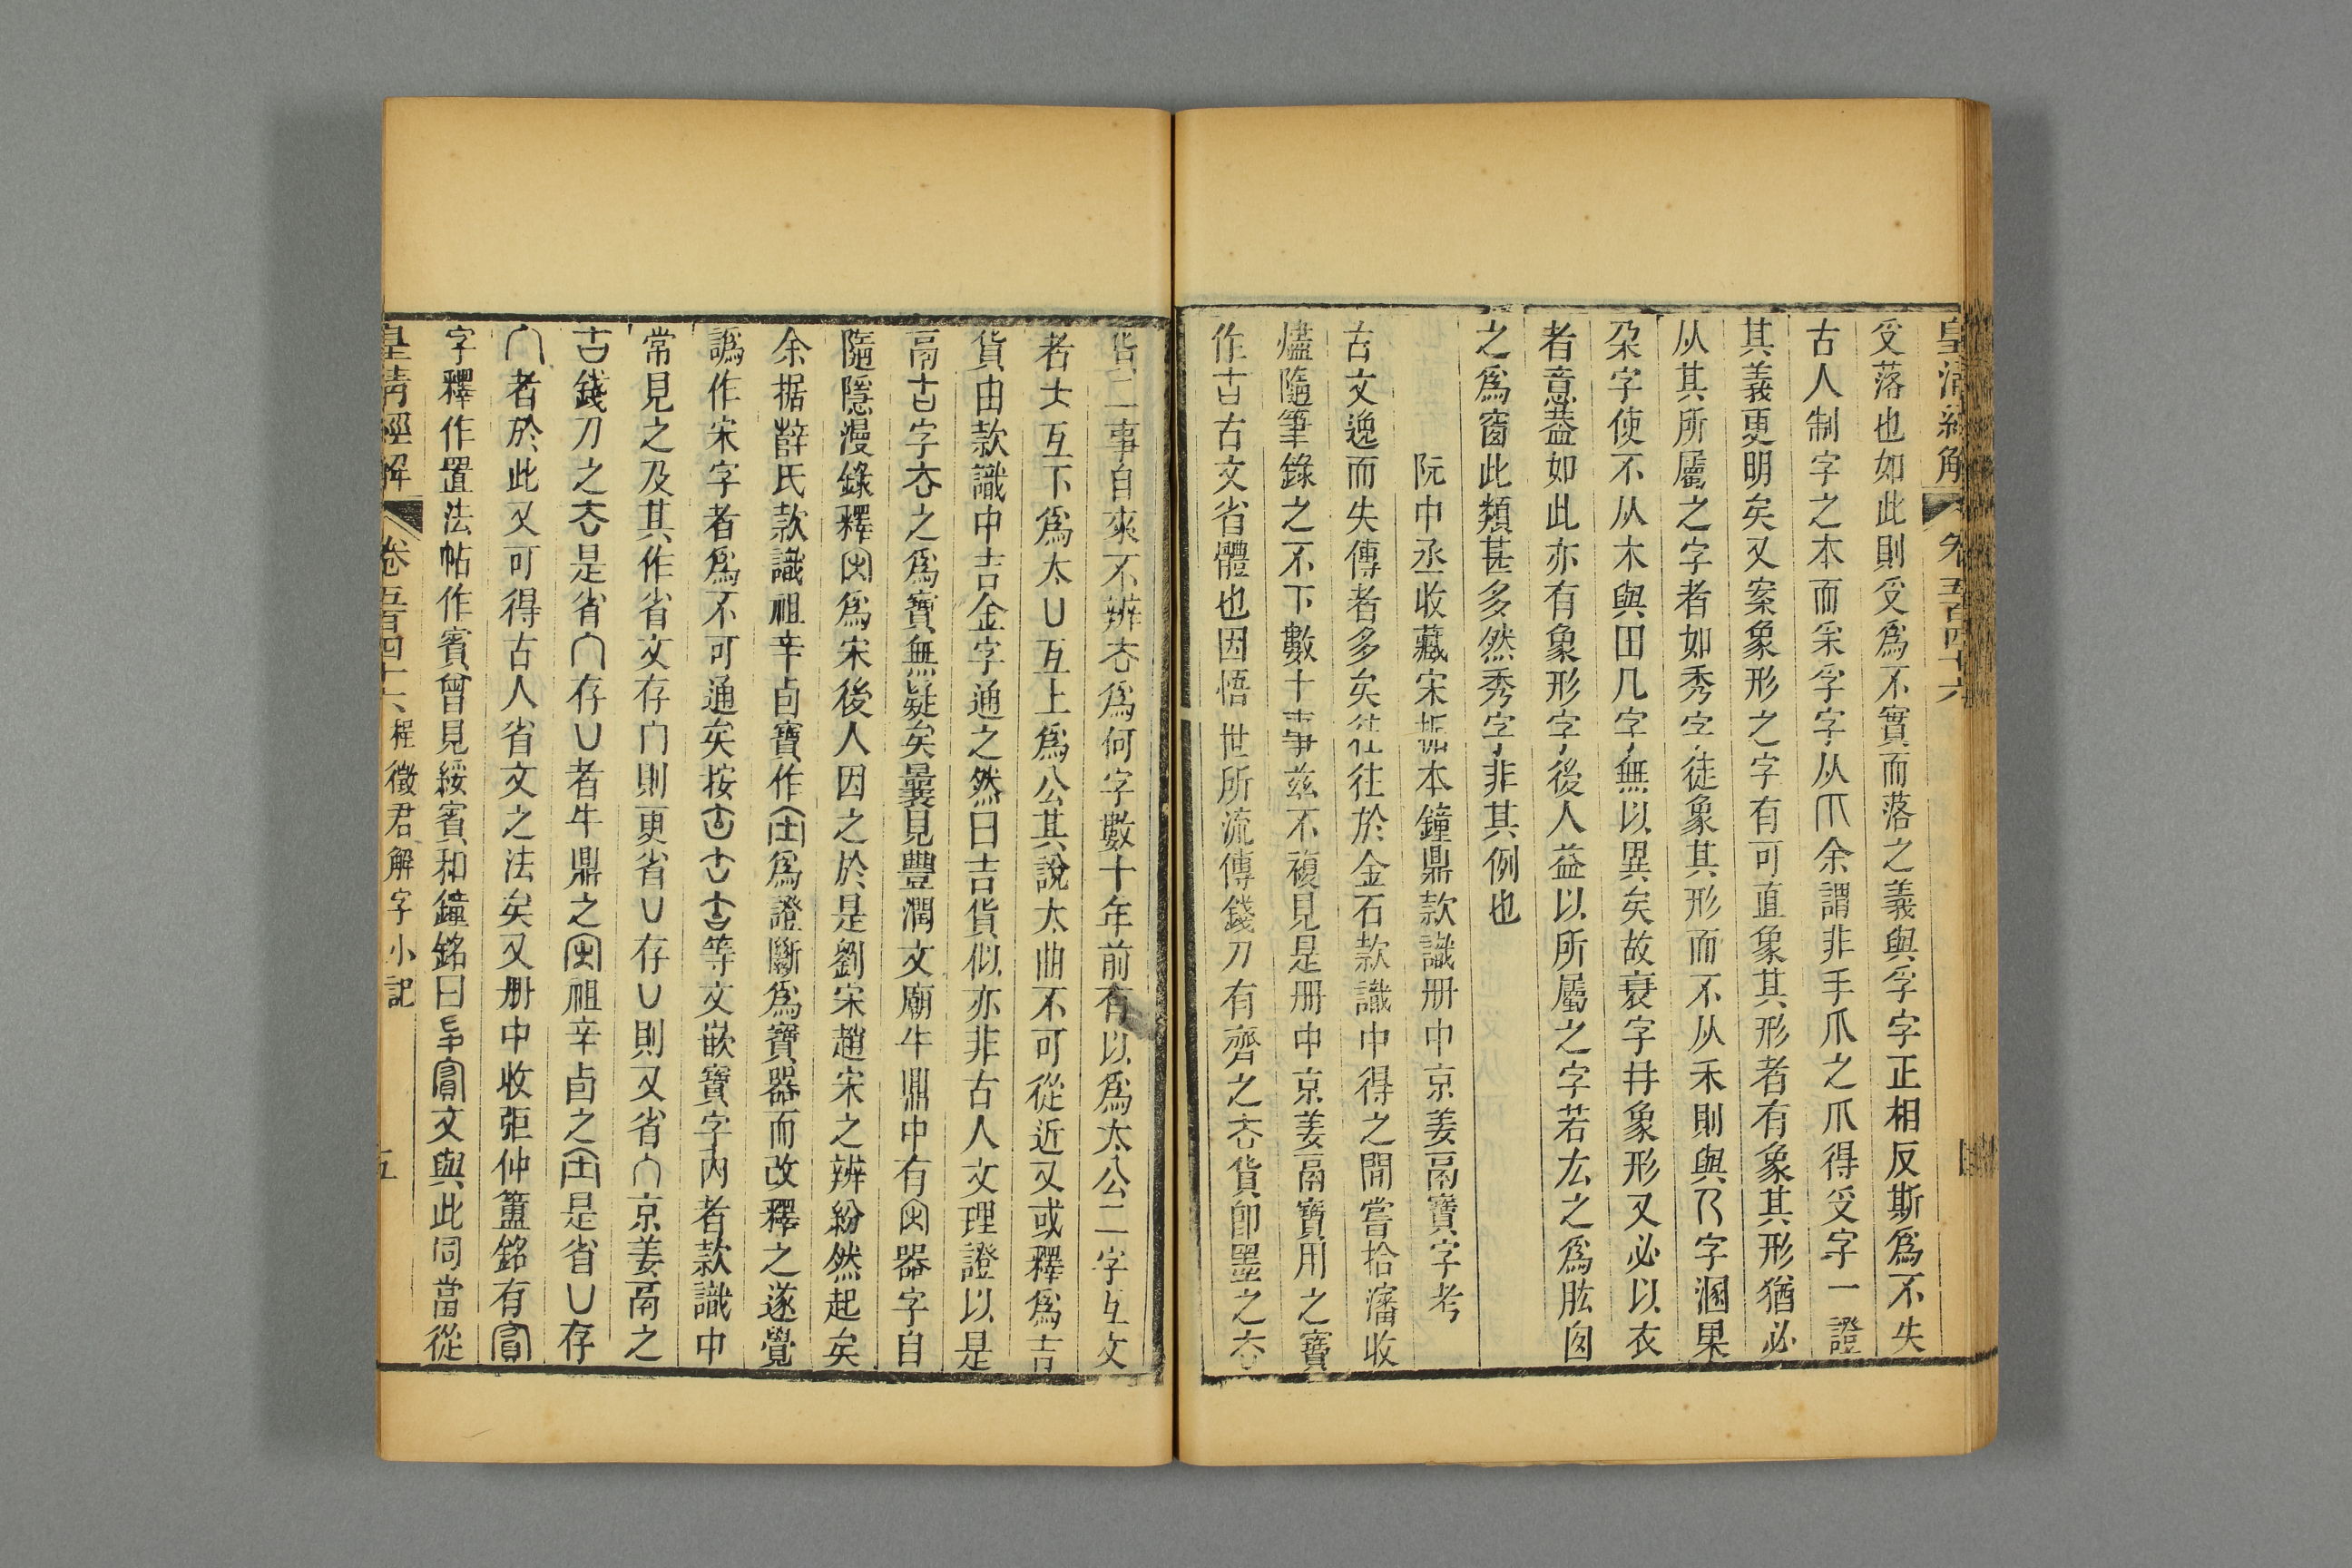 皇清經解 卷五百四十六
受落也如此則受爲不實而落之義與孚字正相反斯爲不失
古人制字之本而采孚字从爪余謂非手爪之爪得受字一證
其義更明矣又案象形之字有可直象其形者有象其形猶必
从其所屬之字者如秀字徒象其形而不从禾則與乃字溷果
朶字使不从木與田几字無以異矣故衰字井象形又必以衣
者意葢如此亦有象形字後人益以所屬之字若厷之爲肱囱
之爲窗此類甚多然秀字非其例也
阮中丞收藏宋拓本鐘鼎款識册中京姜鬲寶字考
古文逸而失傳者多矣往往於金石款識中得之閒嘗拾瀋收
燼隨筆錄之不下數十事兹不複見是册中京姜鬲寶用之寶
作古文省體也因悟世所流傳錢刀有齊之杏貨卽墨之杏
貨二事自來不辨杏爲何字數十年前有以爲太公二字互文
者大互下爲太凵互上爲公其說太曲不可從近又或釋爲吉
貨由款識中吉金字通之然曰吉貨似亦非古人文理證以是
鬲字杏之爲寶無疑矣曩見豐潤文廟牛鼎中有器字自
隨隱漫錄釋爲宋後人因之於是劉宋趙宋之辨紛然起矣
余据薛氏款識祖辛卣寶作爲證斷爲寶器而改釋之遂覺
譌作宋字者爲不可通矣按等文嵌寶字內者款識中
常見之及其作省文存冂則更省凵存凵則又省冂京姜鬲之
古錢刀之杏是省冂存凵者牛鼎之祖辛卣之是省凵存
冂者於此又可得古人省文之法矣又册中收弡仲簠銘有
字釋作置法帖作賓曾見綏賓和鐘銘曰文與此同當從
皇清經解 卷五百四十六 程徵君解字小記 五